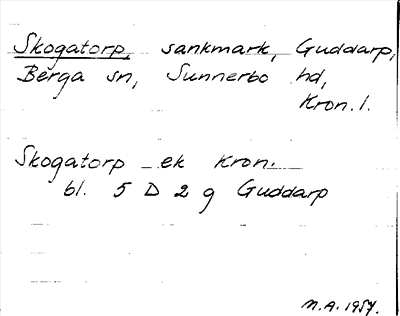 Skogatorp, sankmark, Guddarp,
Berga sn, Sunnerbo hd,
Kron. l.
Skogatorp ek Kron.
bl. 5 D 2 g Guddarp
M.A. 1957.